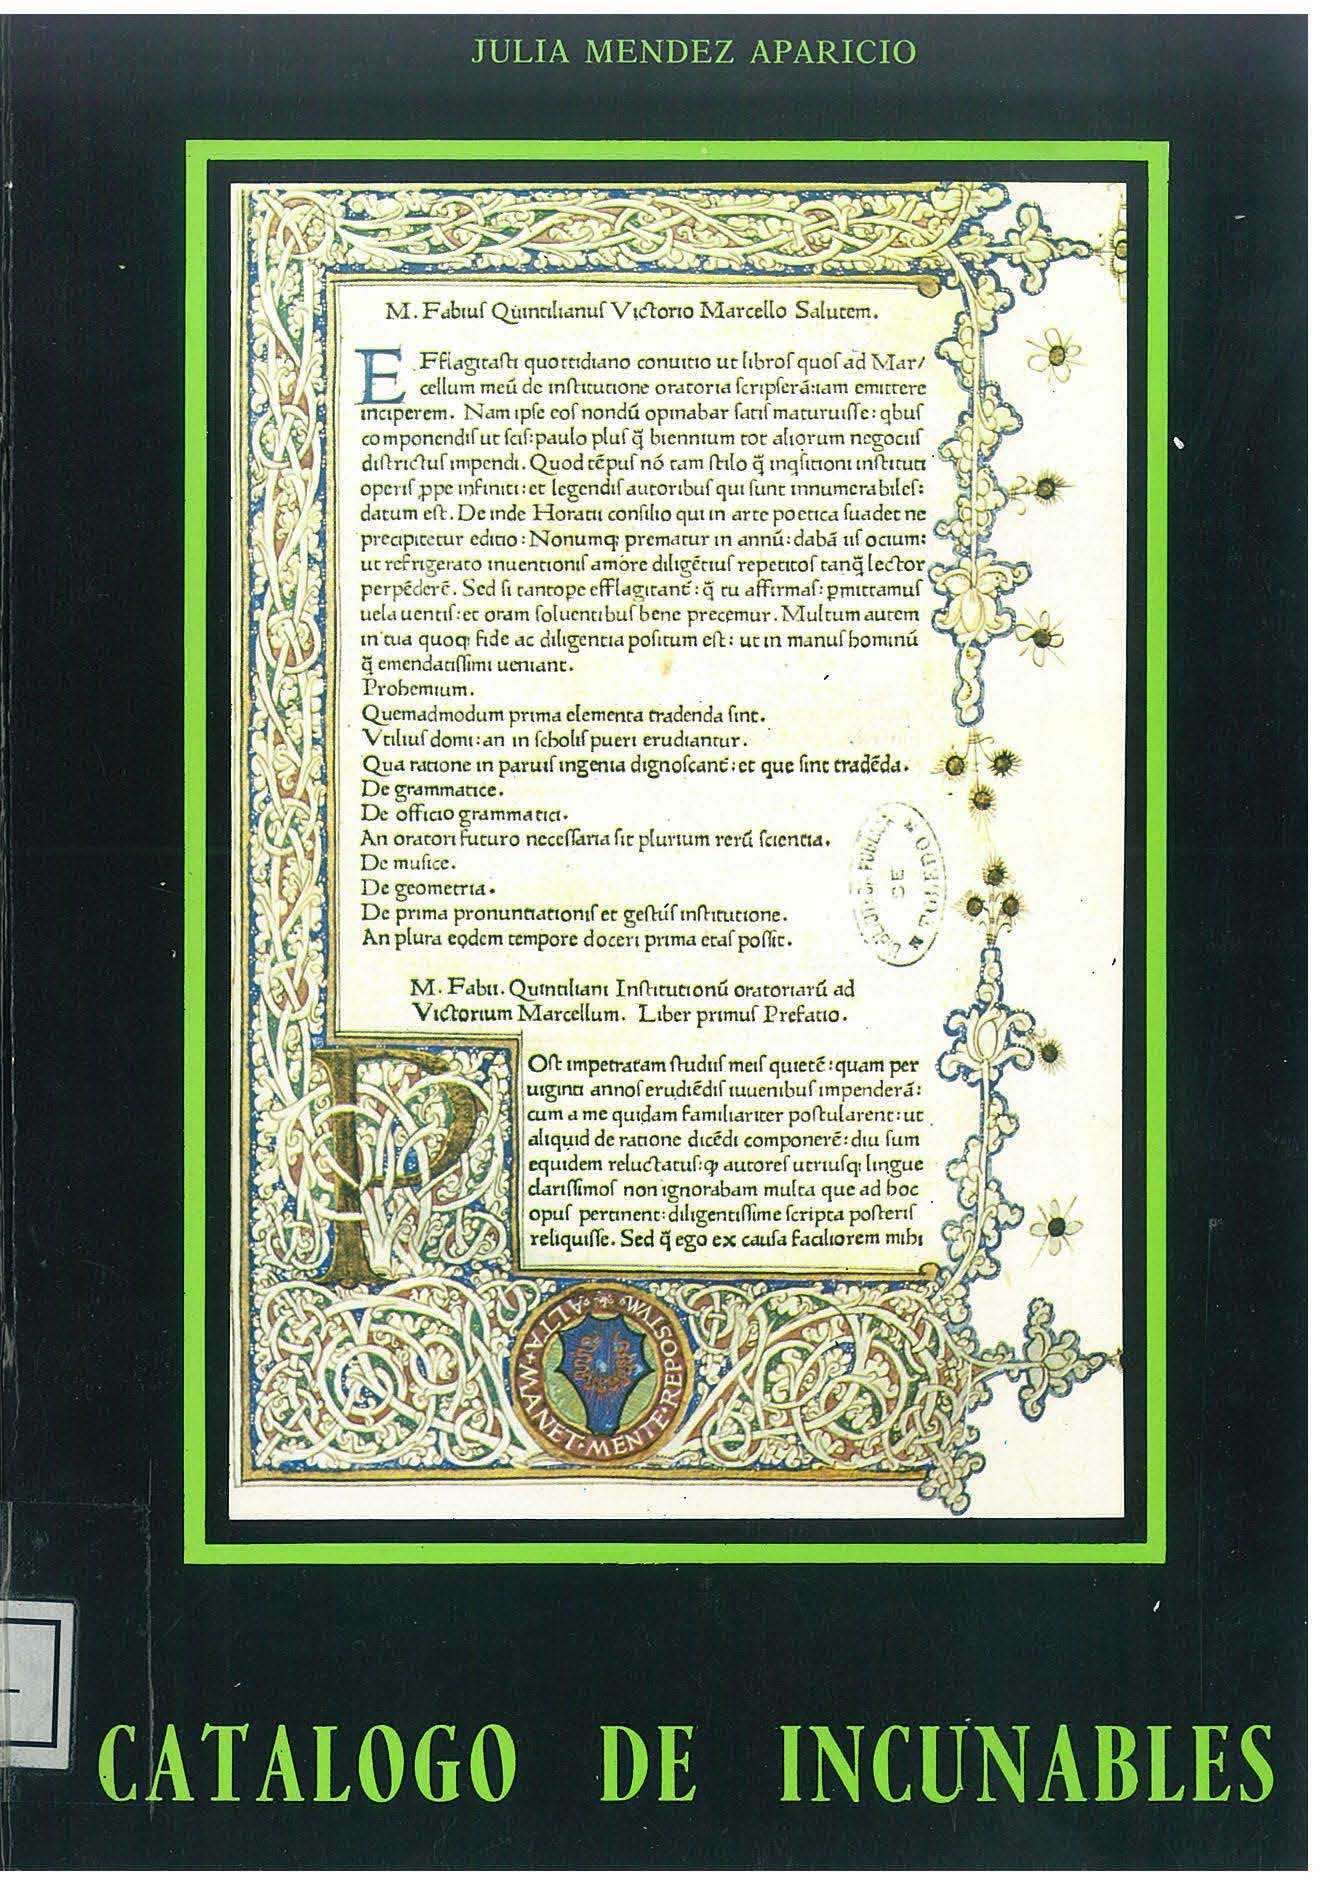 JULIA MENDEZ APARICIO
M. Fabiuſ Quintilianuſ Victorio Marcello Salutem.
EFflagitaſti quottidiano conuitio ut libroſ quoſ ad Mar/
cellum meū de inſtitutione oratoria ſcripſerā:iam emittere
inciperem. Nam ipſe eoſ nondū opinabar ſatiſ maturuiſſe: qbuſ
componendiſ ut ſciſ: paulo pluſ q̄ biennium tot aliorum negociiſ
diſtrictuſ impendi. Quod tēpuſ nó tam ſtilo q̄ inqſitioni inſtituti
operiſ ꝓpe infiniti: et legendiſ autoribuſ qui ſunt innumerabileſ:
datum eſt. De inde Horatii conſilio qui in arte poetica ſuadet ne
precipitetur editio: Nonumqꝫ prematur in annū: dabā iiſ ocium:
ut refrigerato inuentioniſ amore diligētiuſ repetitoſ tanq̄ lector
perpēderē. Sed ſi tantope efflagitant̄: q̄ tu affirmaſ: ꝑmittamuſ
uela uentiſ: et oram ſoluentibuſ bene precemur. Multum autem
in tua quoqꝫ fide ac diligentia poſitum eſt: ut in manuſ hominū
q̄ emendatiſſimi ueniant.
Prohemium.
Quemadmodum prima elementa tradenda ſint.
Vtiliuſ domi: an in ſcholiſ pueri erudiantur.
Qua ratione in paruiſ ingenia dignoſcant̄: et que ſint tradēda.
De grammatice.
De officio grammatici.
An oratori futuro neceſſaria ſit plurium rerū ſcientia.
De muſice.
De geometria.
De prima pronuntiationiſ et geſtuſ inſtitutione.
An plura eodem tempore doceri prima etaſ poſſit.
DE
TOLEDO
M. Fabii. Quintiliani Inſtitutionū oratoriarū ad
Victorium Marcellum. Liber primuſ Prefatio.
POſt impetratam ſtudiiſ meiſ quietē: quam per
uiginti annoſ erudiēdiſ iuuenibuſ impenderā:
cum a me quidam familiariter poſtularent: ut
aliquid de ratione dicēdi componerē: diu ſum
equidem reluctatuſ: ꝙ autoreſ utriuſqꝫ lingue
clariſſimoſ non ignorabam multa que ad hoc
opuſ pertinent: diligentiſſime ſcripta poſteriſ
reliquiſſe. Sed q̄ ego ex cauſa faciliorem mihi
ALTA·MANET·MENTE·REPOSTVM
CATALOGO DE INCUNABLES